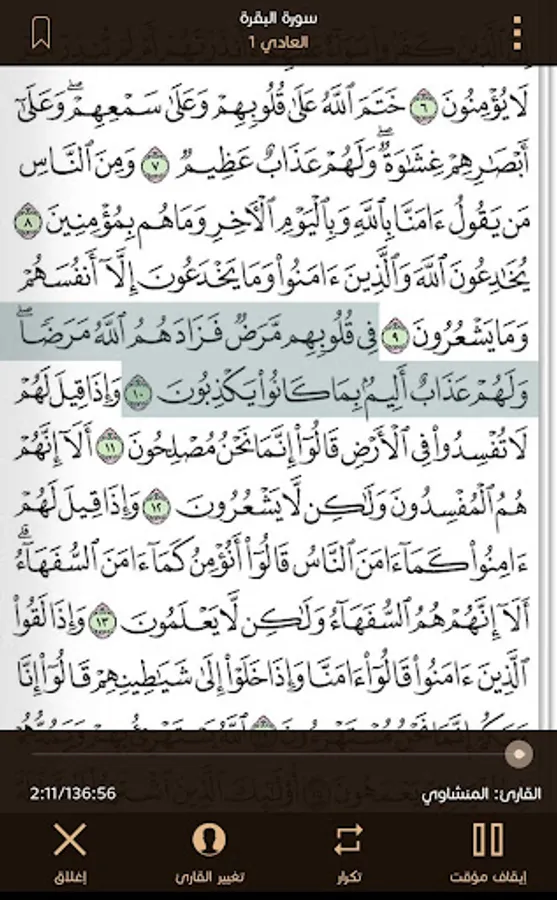 سورة البقرة
العادي 1
لَا يُؤْمِنُونَ ٦ خَتَمَ ٱللَّهُ عَلَىٰ قُلُوبِهِمْ وَعَلَىٰ سَمْعِهِمْ ۖ وَعَلَىٰٓ
أَبْصَٰرِهِمْ غِشَٰوَةٌ ۖ وَلَهُمْ عَذَابٌ عَظِيمٌ ٧ وَمِنَ ٱلنَّاسِ
مَن يَقُولُ ءَامَنَّا بِٱللَّهِ وَبِٱلْيَوْمِ ٱلْءَاخِرِ وَمَا هُم بِمُؤْمِنِينَ ٨
يُخَٰدِعُونَ ٱللَّهَ وَٱلَّذِينَ ءَامَنُوا۟ وَمَا يَخْدَعُونَ إِلَّآ أَنفُسَهُمْ
وَمَا يَشْعُرُونَ ٩ فِى قُلُوبِهِم مَّرَضٌ فَزَادَهُمُ ٱللَّهُ مَرَضًا ۖ
وَلَهُمْ عَذَابٌ أَلِيمٌۢ بِمَا كَانُوا۟ يَكْذِبُونَ ١٠ وَإِذَا قِيلَ لَهُمْ
لَا تُفْسِدُوا۟ فِى ٱلْأَرْضِ قَالُوٓا۟ إِنَّمَا نَحْنُ مُصْلِحُونَ ١١ أَلَآ إِنَّهُمْ
هُمُ ٱلْمُفْسِدُونَ وَلَٰكِن لَّا يَشْعُرُونَ ١٢ وَإِذَا قِيلَ لَهُمْ
ءَامِنُوا۟ كَمَآ ءَامَنَ ٱلنَّاسُ قَالُوٓا۟ أَنُؤْمِنُ كَمَآ ءَامَنَ ٱلسُّفَهَآءُ ۗ
أَلَآ إِنَّهُمْ هُمُ ٱلسُّفَهَآءُ وَلَٰكِن لَّا يَعْلَمُونَ ١٣ وَإِذَا لَقُوا۟
ٱلَّذِينَ ءَامَنُوا۟ قَالُوٓا۟ ءَامَنَّا وَإِذَا خَلَوْا۟ إِلَىٰ شَيَٰطِينِهِمْ قَالُوٓا۟ إِنَّا
القارئ: المنشاوي 2:11/136:56
إيقاف مؤقت تكرار تغيير القارئ إغلاق